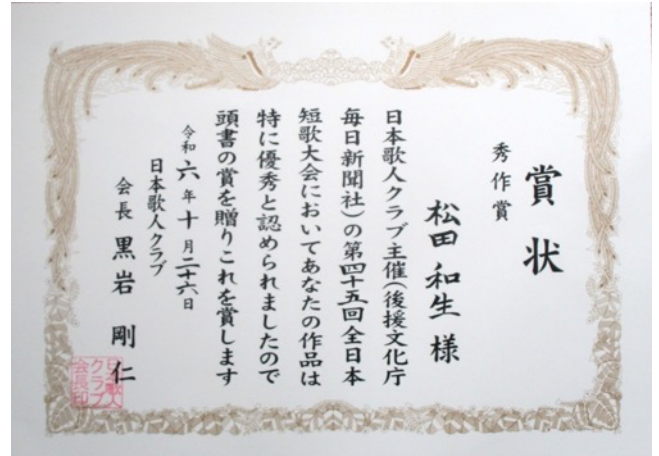 賞状
秀作賞
松田 和生 様
日本歌人クラブ主催(後援文化庁
毎日新聞社)の第四十五回全日本
短歌大会においてあなたの作品は
特に優秀と認められましたので
頭書の賞を贈りこれを賞します
令和六年十月二十六日
日本歌人クラブ
会長 黒岩 剛仁
日本歌人
クラブ
会長印